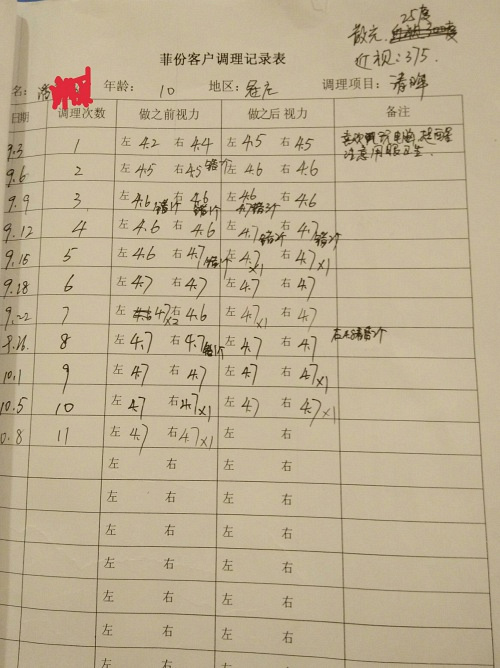 散光 25度
近视:375
菲份客户调理记录表
名: 年龄: 10 地区: 冠庄 调理项目: 清眸
日期 调理次数 做之前视力 做之后视力 备注
9.3 1 左 4.2 右 4.4 左 4.5 右 4.5
9.6 2 左 4.5 右 4.5 错1个 左 4.6 右 4.6 注意用眼卫生
9.9 3 左 4.6 错1个 右 4.6 错1个 左 4.6 右 4.6
9.12 4 左 4.6 右 4.6 左 4.7 错1个 右 4.7 错1个
9.15 5 左 4.6 右 4.7 左 4.7×1 右 4.7×1
9.18 6 左 4.7 右 4.7 左 4.7 右 4.7
9.22 7 左 4.7×2 右 4.6 左 4.7×1 右 4.7
9.26 8 左 4.7 右 4.7 错1个 左 4.7 右 4.7
10.1 9 左 4.7 右 4.7 左 4.7 右 4.7×1
10.5 10 左 4.7 右 4.7×1 左 4.7 右 4.7×1
0.8 11 左 4.7 右 4.7×1 左 右
左 右 左 右
左 右 左 右
左 右 左 右
左 右 左 右
左 右 左 右
左 右 左 右
左 右 左 右